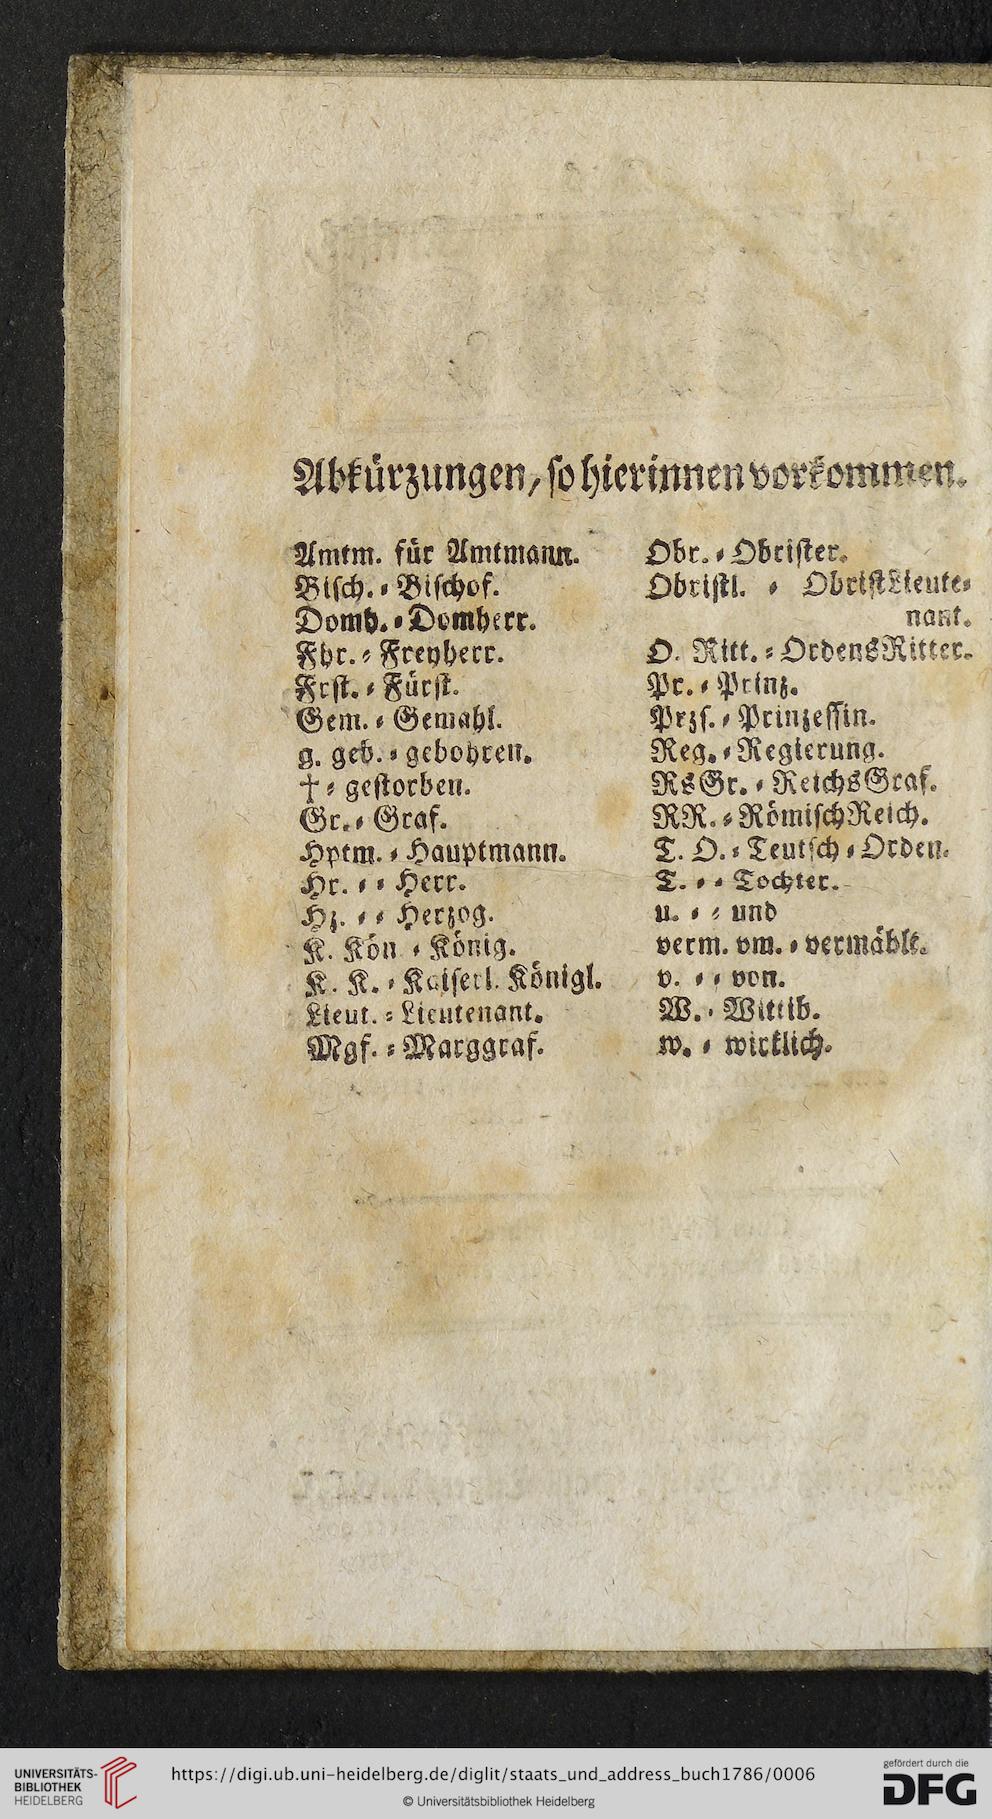 Abkürzungen, so hierinnen vorkommen.
Amtm. für Amtmann.
Bisch. ⸗ Bischof.
Domh. ⸗ Domherr.
Fhr. ⸗ Freyherr.
Frst. ⸗ Fürst.
Gem. ⸗ Gemahl.
g. geb. ⸗ gebohren.
† ⸗ gestorben.
Gr. ⸗ Graf.
Hptm. ⸗ Hauptmann.
Hr. ⸗ ⸗ Herr.
Hz. ⸗ ⸗ Herzog.
K. Kön ⸗ König.
K. K. ⸗ Kaiserl. Königl.
Lieut. ⸗ Lieutenant.
Mgf. ⸗ Marggraf.
Obr. ⸗ Obrister.
Obristl. ⸗ ObristLieute⸗
nant.
O. Ritt. ⸗ OrdensRitter.
Pr. ⸗ Prinz.
Przs. ⸗ Prinzessin.
Reg. ⸗ Regierung.
RsGr. ⸗ ReichsGraf.
RR. ⸗ RömischReich.
T. O. ⸗ Teutsch ⸗ Orden.
T. ⸗ ⸗ Tochter.
u. ⸗ ⸗ und
verm. vm. ⸗ vermählt.
v. ⸗ ⸗ von.
W. ⸗ Wittib.
w. ⸗ wirklich.
UNIVERSITÄTS-
BIBLIOTHEK
HEIDELBERG
https://digi.ub.uni-heidelberg.de/diglit/staats_und_address_buch1786/0006
© Universitätsbibliothek Heidelberg
gefördert durch die
DFG